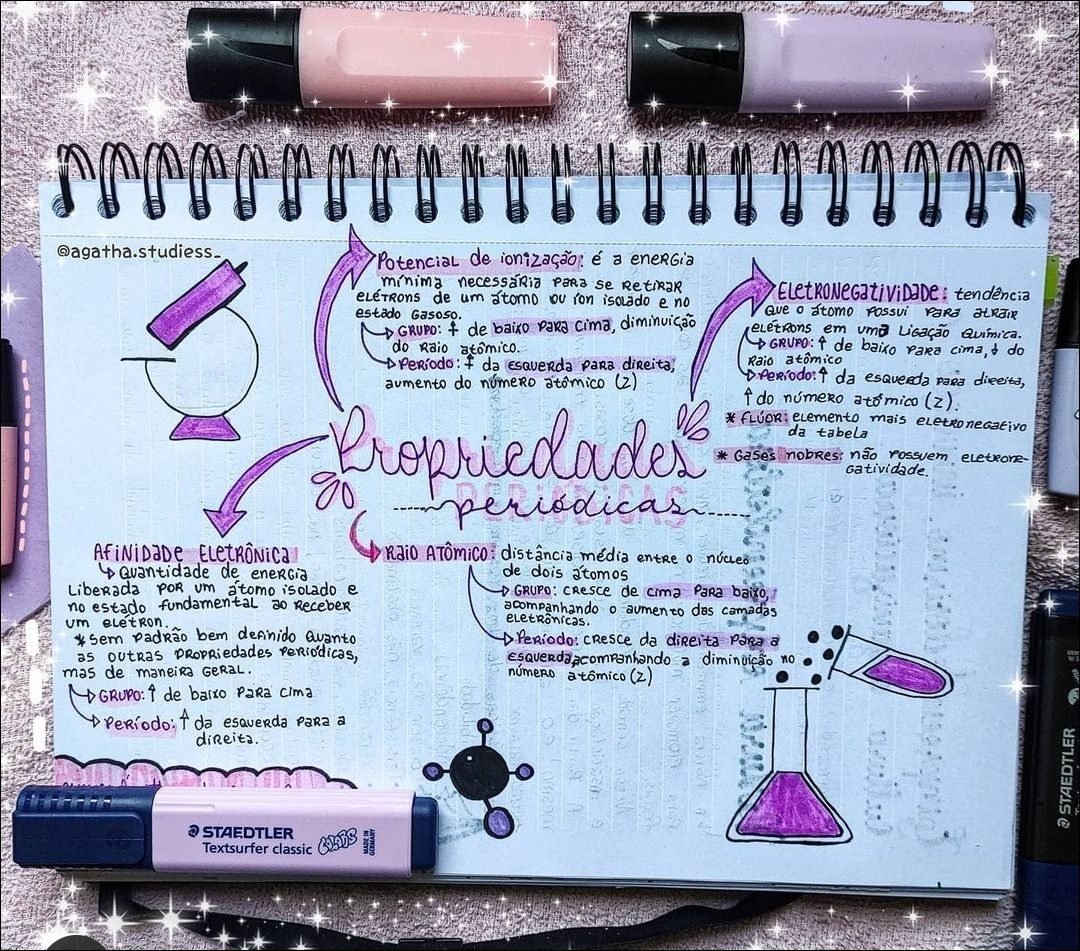 @agatha.studiess_
Potencial de ionização: é a energia
mínima necessária para se retirar
elétrons de um átomo ou íon isolado e no
estado gasoso.
Grupo: ↑ de baixo para cima, diminuição
do raio atômico.
Período: ↑ da esquerda para direita,
aumento do número atômico (Z)
Eletronegatividade: tendência
que o átomo possui para atrair
elétrons em uma ligação química.
Grupo: ↑ de baixo para cima, ↓ do
raio atômico
Período: ↑ da esquerda para direita,
↑ do número atômico (Z).
* Flúor: elemento mais eletronegativo
da tabela
* Gases nobres: não possuem eletrone-
gatividade.
Propriedades
periódicas
PERIÓDICAS
Afinidade Eletrônica
Quantidade de energia
liberada por um átomo isolado e
no estado fundamental ao receber
um elétron.
*Sem padrão bem definido quanto
as outras propriedades periódicas,
mas de maneira geral.
Grupo: ↑ de baixo para cima
Período: ↑ da esquerda para a
direita.
Raio Atômico: distância média entre o núcleo
de dois átomos
Grupo: cresce de cima para baixo,
acompanhando o aumento das camadas
eletrônicas.
Período: cresce da direita para a
esquerda, acompanhando a diminuição no
número atômico (Z)
STAEDTLER
Textsurfer classic
COLORS
MADE IN
GERMANY
STAEDTLER